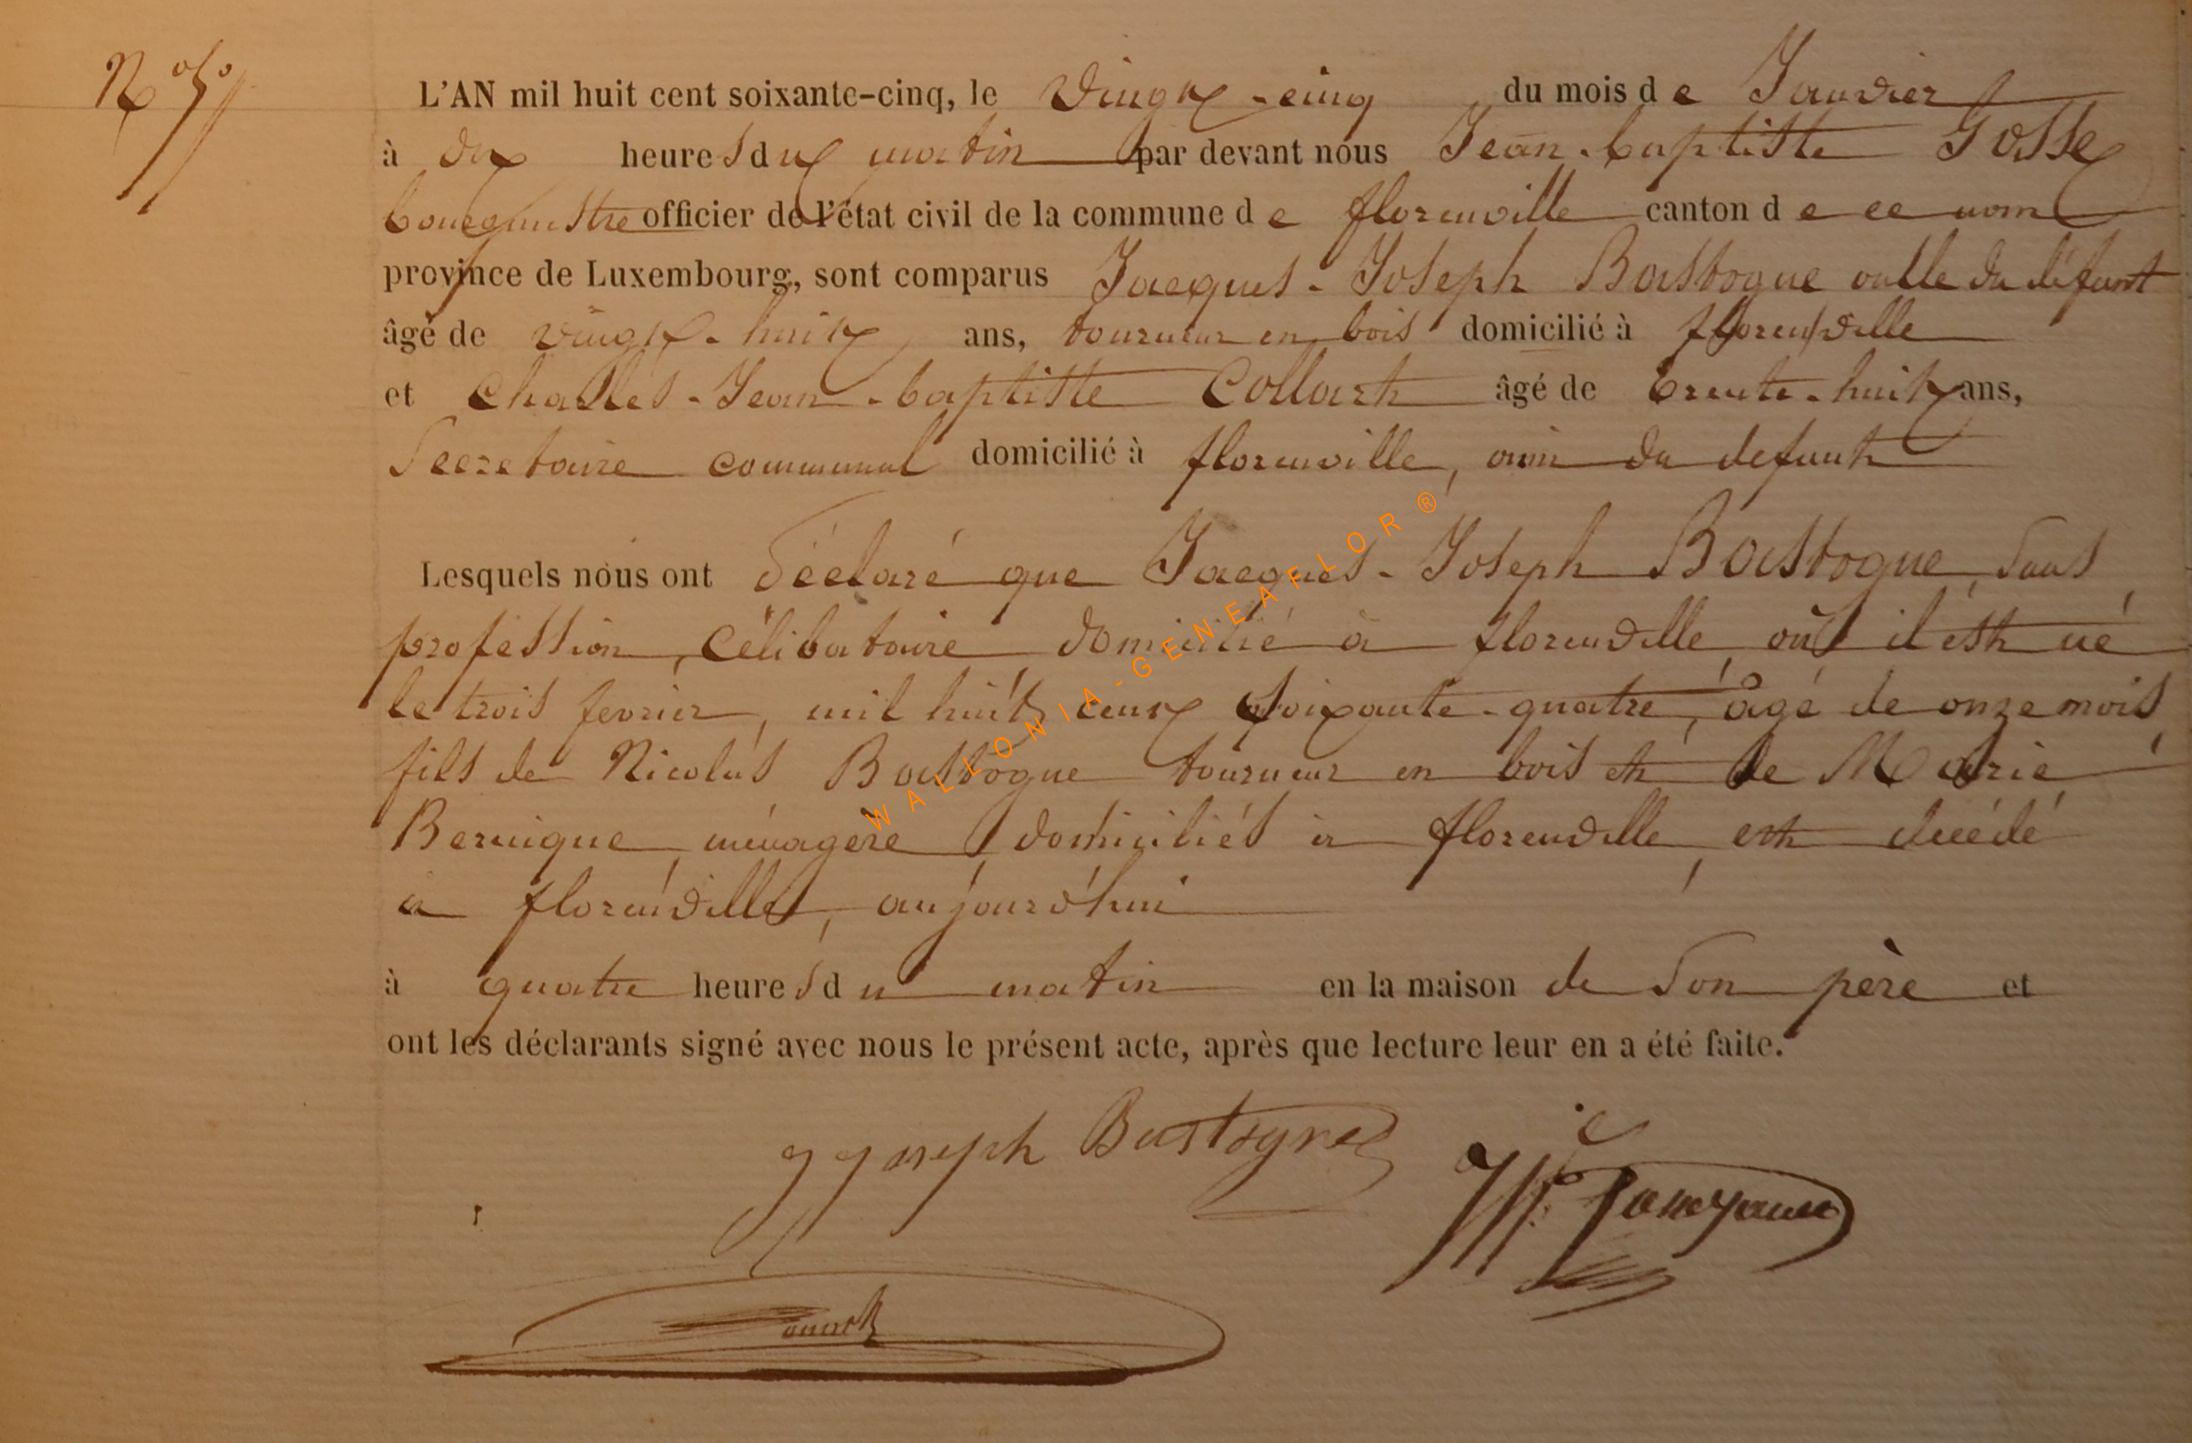 N° 5
L'AN mil huit cent soixante-cinq, le vingt-cinq du mois de Janvier
à dix heures du matin par devant nous Jean-baptiste Gosse
bourgmestre officier de l'état civil de la commune de florenville canton de ce nom
province de Luxembourg, sont comparus Jacques-Joseph Bastogne oncle du défunt
âgé de vingt-huit ans, tourneur en bois domicilié à florenville
et Charles-Jean-baptiste Collart âgé de trente-huit ans,
Secretaire communal domicilié à florenville, ami du defunt
Lesquels nous ont déclaré que Jacques-Joseph Bastogne, sans
profession, célibataire domicilié à florenville, où il est né
le trois fevrier, mil huit cent soixante-quatre, âgé de onze mois,
fils de Nicolas Bastogne tourneur en bois et de Marie
Bernique, ménagère domiciliés à florenville, est décédé
à florenville, aujourd'hui
à quatre heures du matin en la maison de son père et
ont les déclarants signé avec nous le présent acte, après que lecture leur en a été faite.
J Joseph Bastogne
WALLONIA-GENEAFLOR ®